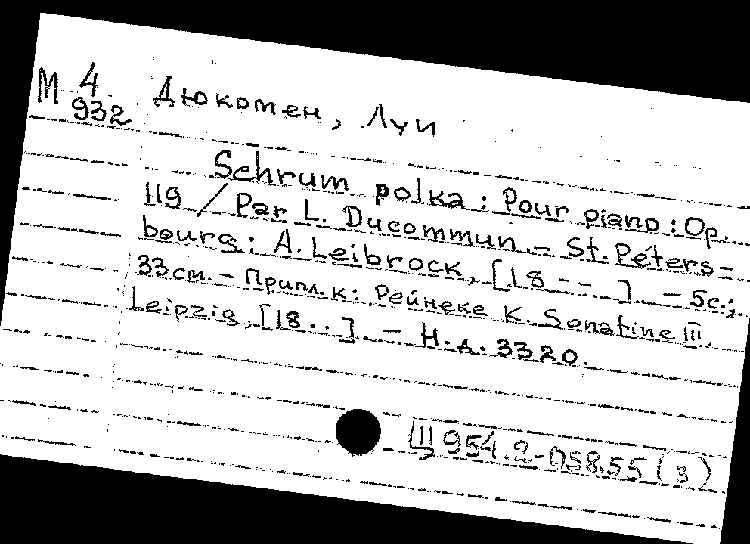 М 4
932
Дюкомен, Луи
Schrum polka : Pour piano : Op.
119 / Par L. Ducommun. – St. Peters-
bourg : A. Leibrock, [18 - - ]. – 5с.;
33см. – Припл. к: Рейнеке К. Sonatine III.
Leipzig, [18 . . ]. – Н.д. 3320.
Ц 954.2-058.55 (3)